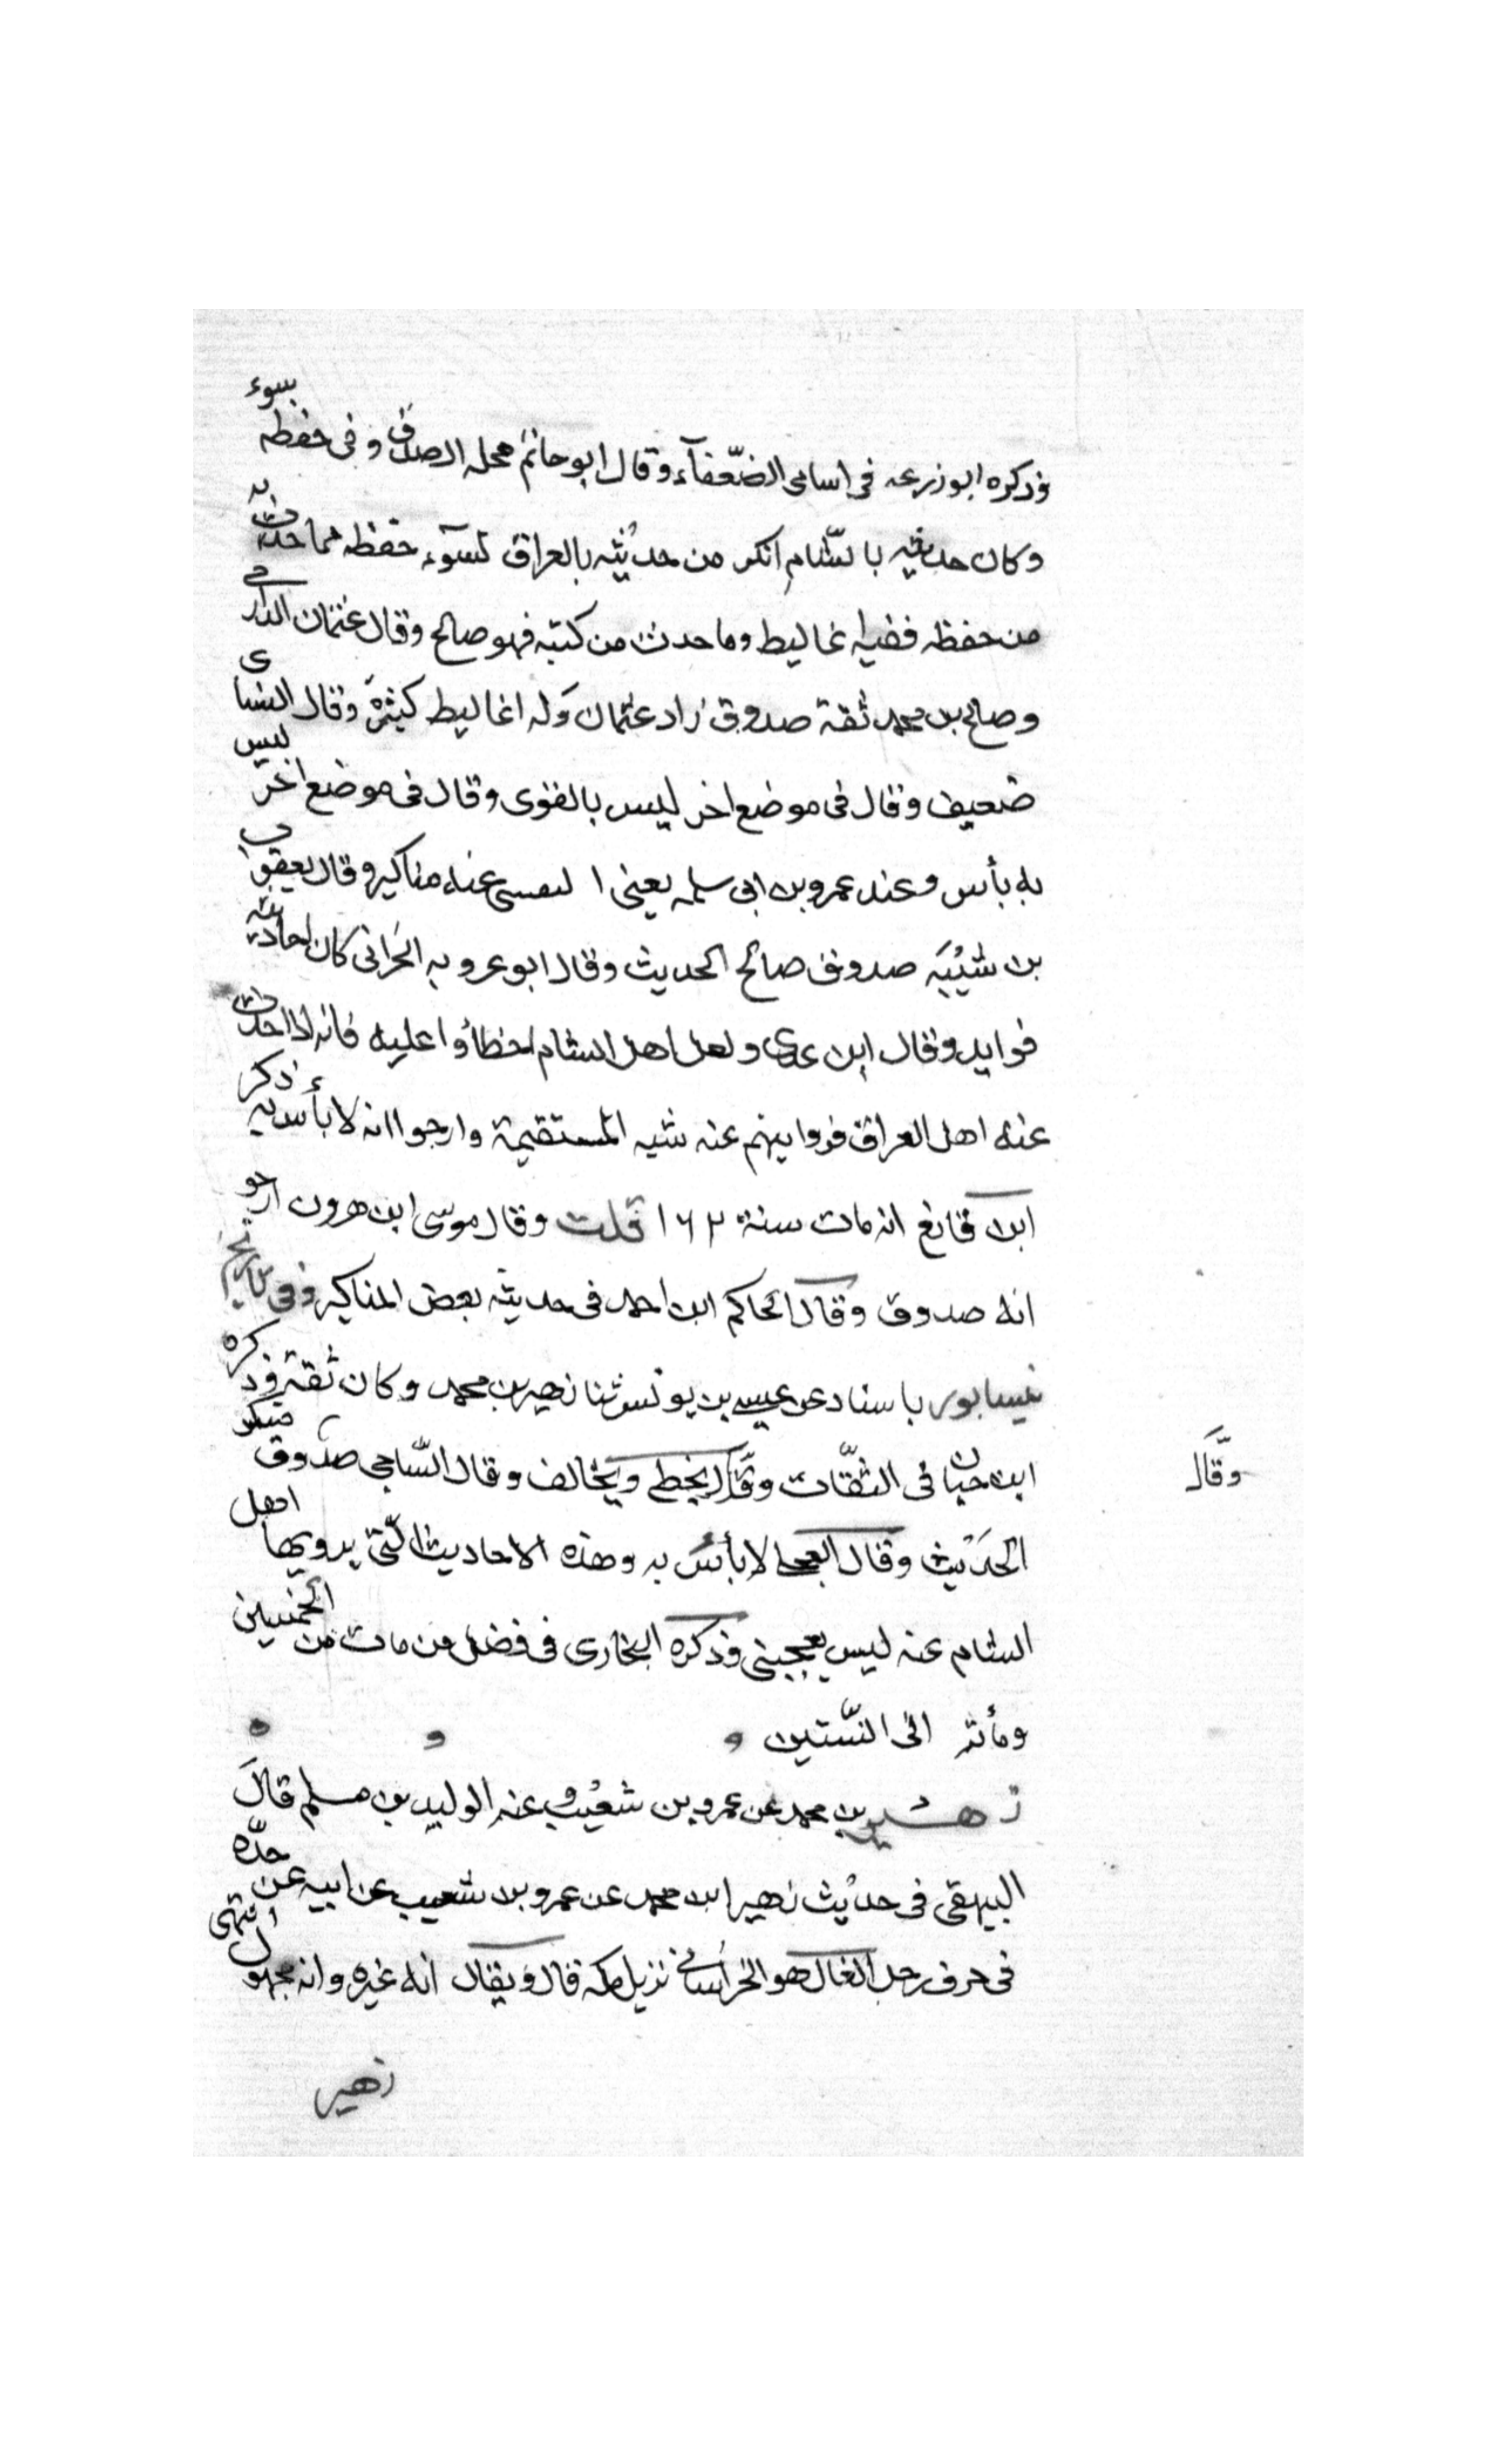 وذكره ابو زرعه فى اسامى الضّعفآء وقال ابو حاتم محله الصدق وفى حفظه بسوء
وكان حديثه بالشّام انكر من حديثه بالعراق لسوٓء حفظه فما حدث به
من حفظه ففيه اغاليط وما حدث من كتبه فهو صالح وقال عثمان الدارمى
وصالح بن محمد ثقة صدوق زاد عثمان وله اغاليط كثيرة وقال النساى
ضعيف وقال فى موضع اخر ليس بالقوى وقال فى موضع اخر ليس
به بأس وعند عمرو بن ابى سلمه يعنى ا لنفسى عنه مناكير وقال يعقوب
بن شيبه صدوق صالح الحديث وقال ابو عروبه الحرانى كان احاديثه
فوايد وقال ابن عدى ولعل اهل الشام اخطأوا عليه فانه اذا حدث
عنه اهل العراق فروايتهم عنه شبه المستقيمة وارجوا انه لا بأس به ذكر
ابن قانع انه مات سنة ١٦٢ قلت وقال موسى ابن هرون ارجو
انه صدوق وقال الحاكم ابن احمد فى حديثه بعض المناكير وفى تاريخ
نيسابور باسناد عن عيسى بن يونس ثنا زهير بن محمد وكان ثقة وذكره
ابن حبان فى الثقّات وقّال يخطى ويخالف وقال السّاجى صدوق منكر
وقّال
الحديث وقال العجلى لا بأس به وهذه الاحاديث الّتى يرويها اهل
الشام عنه ليس يعجبنى وذكره البخارى فى فضل من مات من الخمسين
ومأته الى الستّين
زهير بن محمد عن عمرو بن شعيب وعنه الوليد بن مسلم قال
البيهقى فى حديث زهير ابن محمد عن عمرو بن شعيب عن ابيه عن جدّه
فى حرف رجل الغال هو الخراسانى نزيل مكه قال ويقال انه غيره وانه مجهول انتهى
زهير